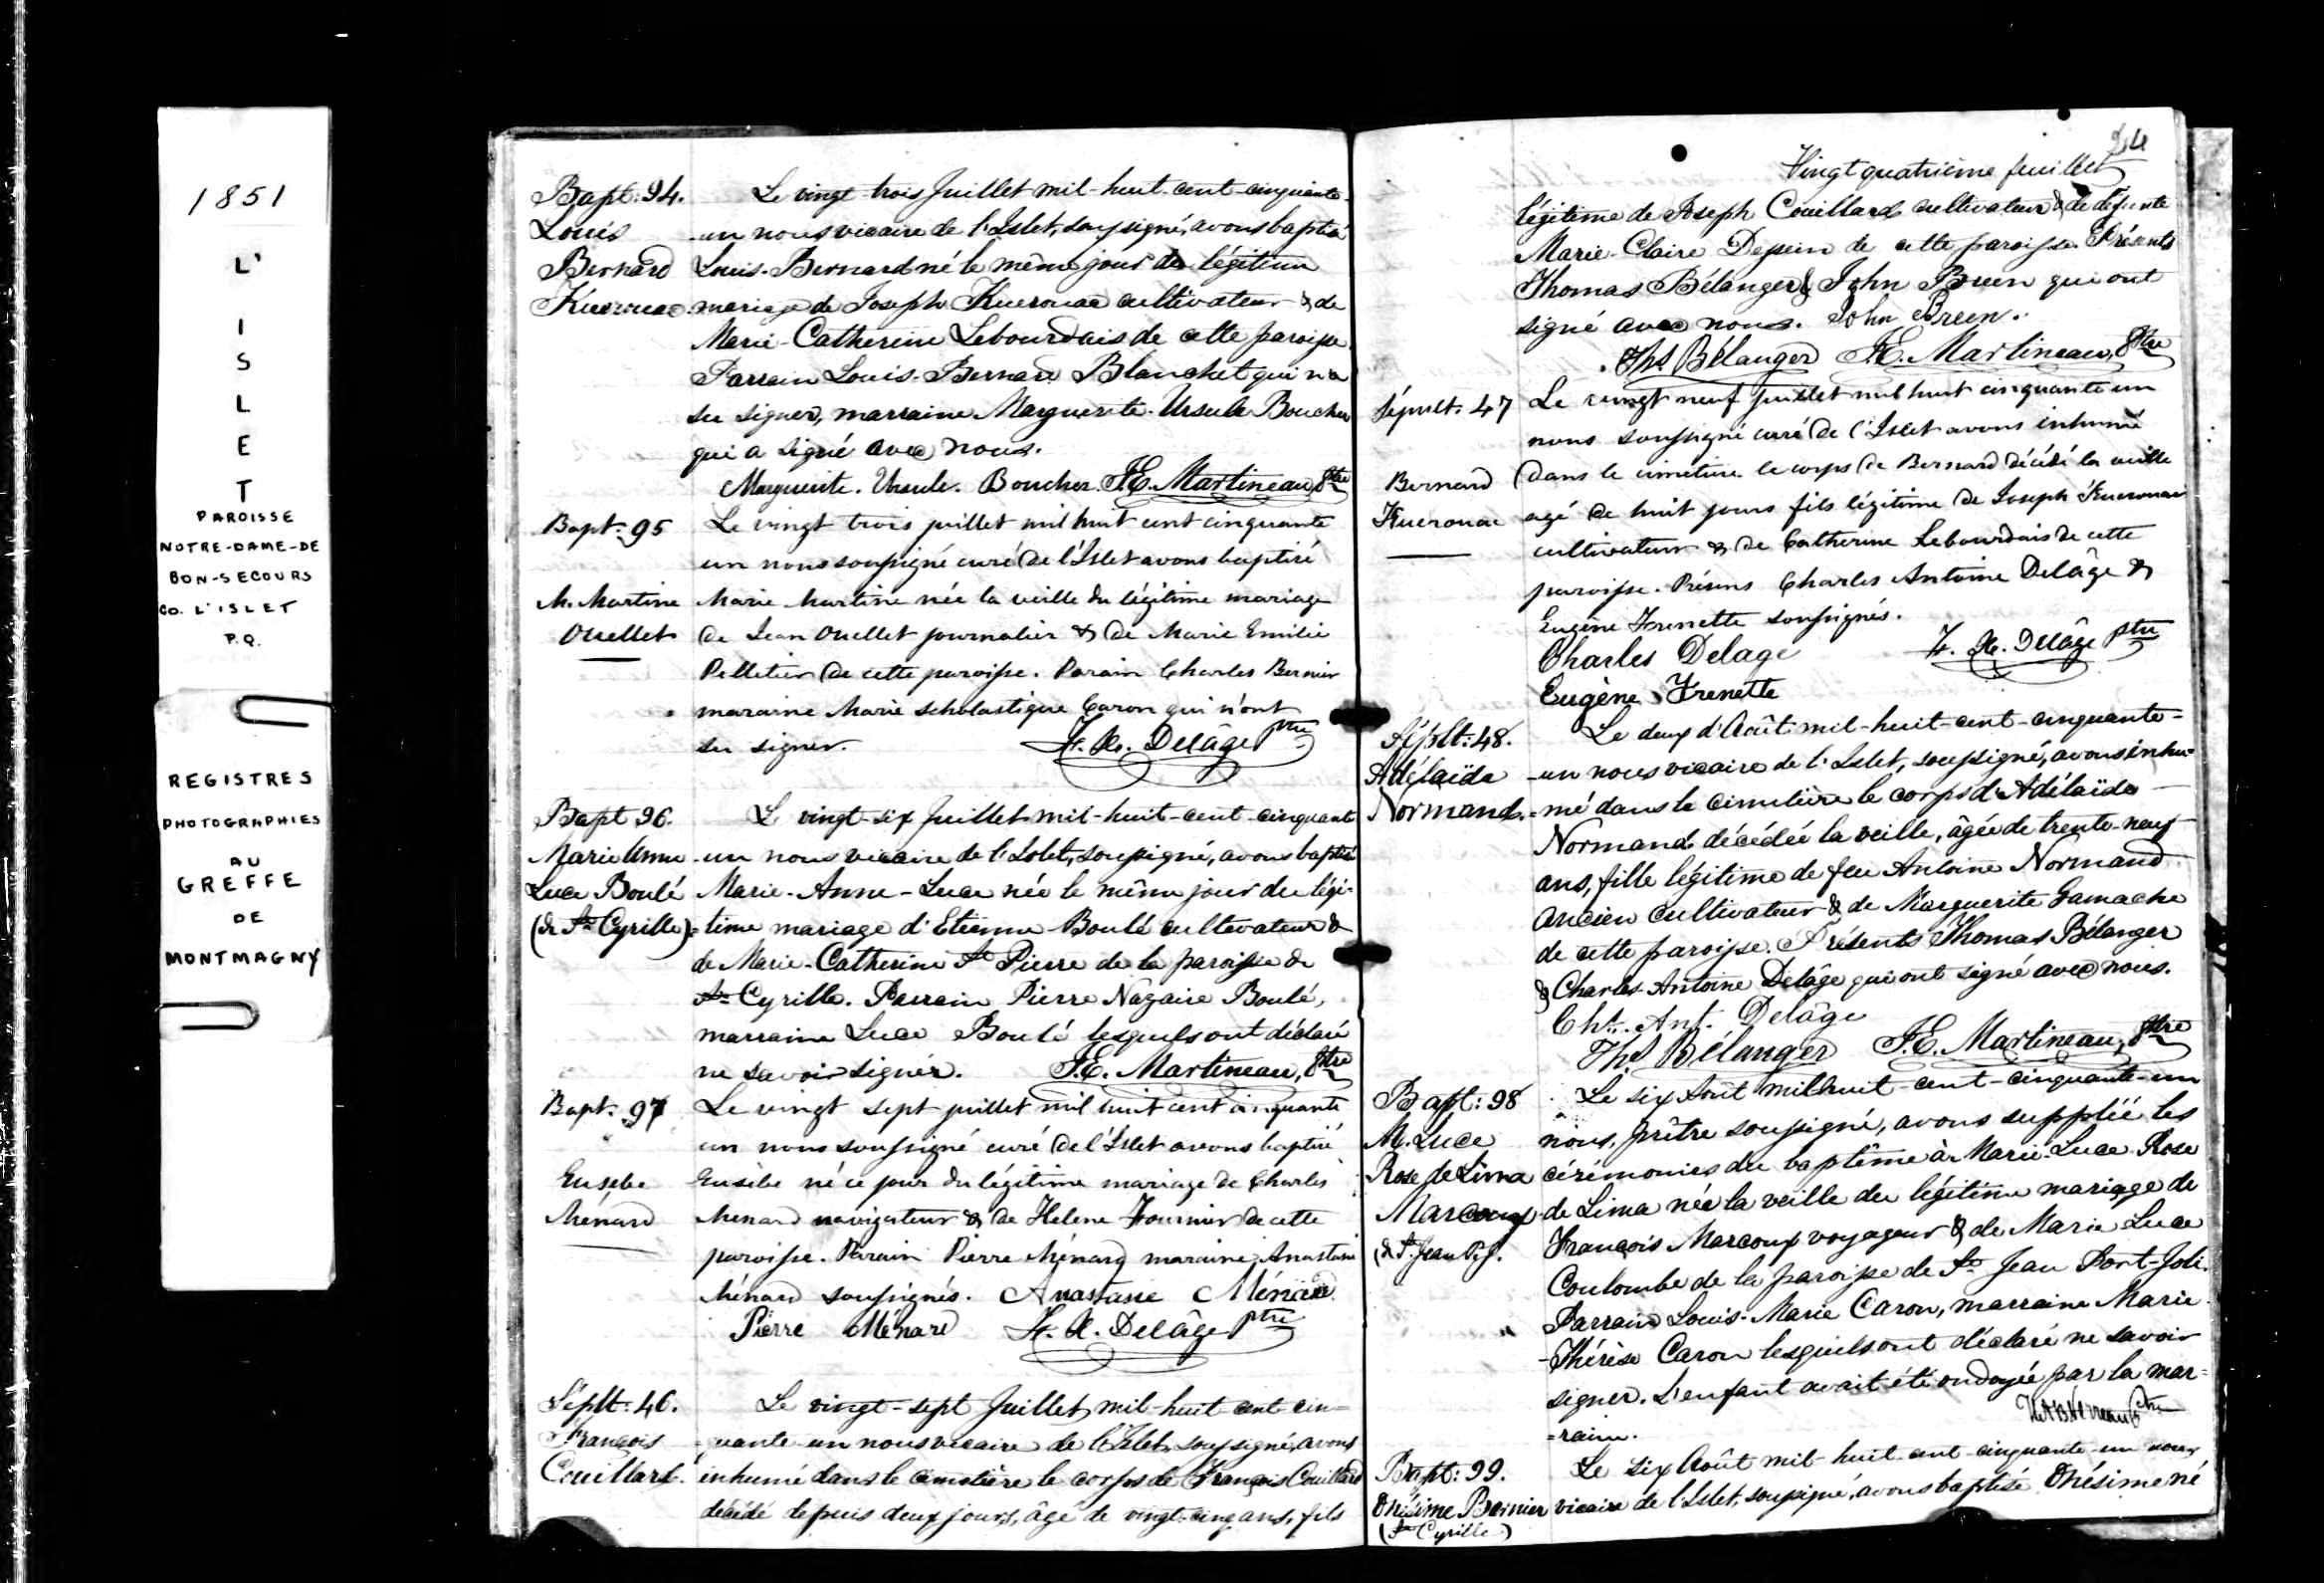 1851
L'
I
S
L
E
T
PAROISSE
NOTRE-DAME-DE
BON-SECOURS
CO. L'ISLET
P.Q.
REGISTRES
PHOTOGRAPHIES
AU
GREFFE
DE
MONTMAGNY
Bapt: 94.
Louis
Bernard
Kuerouac
Le vingt-trois Juillet mil-huit-cent-cinquante-
-un nous vicaire de l'Islet, soussigné, avons baptisé
Louis-Bernard né le même jour du légitime
mariage de Joseph Kuerouac cultivateur & de
Marie-Catherine Lebourdais de cette paroisse.
Parrain Louis-Bernard Blanchet qui n'a
su signer, marraine Marguerite-Ursule Boucher
qui a signé avec nous.
Marguerite. Ursule. Boucher. F.E. Martineau, Ptre
Bapt. 95
M. Martine
Ouellet
Le vingt trois juillet mil huit cent cinquante
un nous soussigné curé de l'Islet avons baptisé
Marie Martine née la veille du légitime mariage
de Jean Ouellet journalier & de Marie Emilie
Pelletier de cette paroisse. Parain Charles Bernier
maraine Marie Scholastique Caron qui n'ont
su signer. F. X. Delâge Ptre
Bapt 96.
Marie Anne
Luce Boulé
(de St Cyrille)
Le vingt-six Juillet mil-huit-cent-cinquante
-un nous vicaire de l'Islet, soussigné, avons baptisé
Marie-Anne-Luce née le même jour du légi-
=time mariage d'Etienne Boulé cultivateur &
de Marie-Catherine St Pierre de la paroisse de
St Cyrille. Parrain Pierre Nazaire Boulé,
marraine Luce Boulé lesquels ont déclaré
ne savoir signer. F.E. Martineau, Ptre
Bapt. 97
Eusèbe
Ménard
Le vingt sept juillet mil huit cent cinquante
un nous soussigné curé de l'Islet avons baptisé
Eusèbe né ce jour du légitime mariage de Charles
Menard navigateur & de Helene Fournier de cette
paroisse. Parain Pierre Ménard maraine Anastasie
Ménard soussignés. Anastasie Ménard
Pierre Ménard F. X. Delâge Ptre
Séplt: 46.
François
Couillard.
Le vingt-sept Juillet mil-huit-cent-cin-
quante-un nous vicaire de l'Islet, soussigné, avons
inhumé dans le cimetière le corps de François Couillard
décédé depuis deux jours, âgé de vingt-cinq ans, fils
24
Vingt quatrième feuillet
légitime de Joseph Couillard cultivateur & de défunte
Marie-Claire Dessein de cette paroisse. Présents
Thomas Bélanger & John Breen qui ont
signé avec nous. John Breen.
Ths Bélanger F.E. Martineau, Ptre
Sépult. 47
Bernard
Kuerouac
Le vingt neuf juillet mil huit cinquante un
nous soussigné curé de l'Islet avons inhumé
dans le cimetiere le corps de Bernard décédé la veille
agé de huit jours fils légitime de Joseph Kuerouac
cultivateur & de Catherine Lebourdais de cette
paroisse. Présens Charles Antoine Delâge &
Eugène Frenette soussignés.
Charles Delage F. X. Delâge Ptre
Eugène Frenette
Séplt: 48.
Adélaïde
Normand.
Le deux d'Août mil-huit-cent-cinquante-
-un nous vicaire de l'Islet, soussigné, avons inhu=
=mé dans le cimetière le corps d'Adélaïde
Normand décédée la veille, âgée de trente-neuf
ans, fille légitime de feu Antoine Normand
ancien cultivateur & de Marguerite Gamache
de cette paroisse. Présents Thomas Bélanger
& Charles-Antoine Delâge qui ont signé avec nous.
Chs. Ant. Delâge
Ths Bélanger F.E. Martineau, Ptre
Bapt: 98
M. Luce
Rose de Lima
Marcoux
(de St. Jean P.J.
Le six Août mil huit-cent-cinquante-un
nous, prêtre soussigné, avons suppléé les
cérémonies du baptême à Marie-Luce-Rose
de Lima née la veille du légitime mariage de
François Marcoux voyageur & de Marie Luce
Coulombe de la paroisse de St Jean Port-Joli.
Parrain Louis-Marie Caron, marraine Marie
-Thérèse Caron lesquels ont déclaré ne savoir
signer. L'enfant avait été ondoyée par la mar=
=raine.
Bapt: 99.
Onésime Bernier
(St Cyrille)
Le six Août mil-huit-cent-cinquante-un nous
vicaire de l'Islet, soussigné, avons baptisé Onésime né